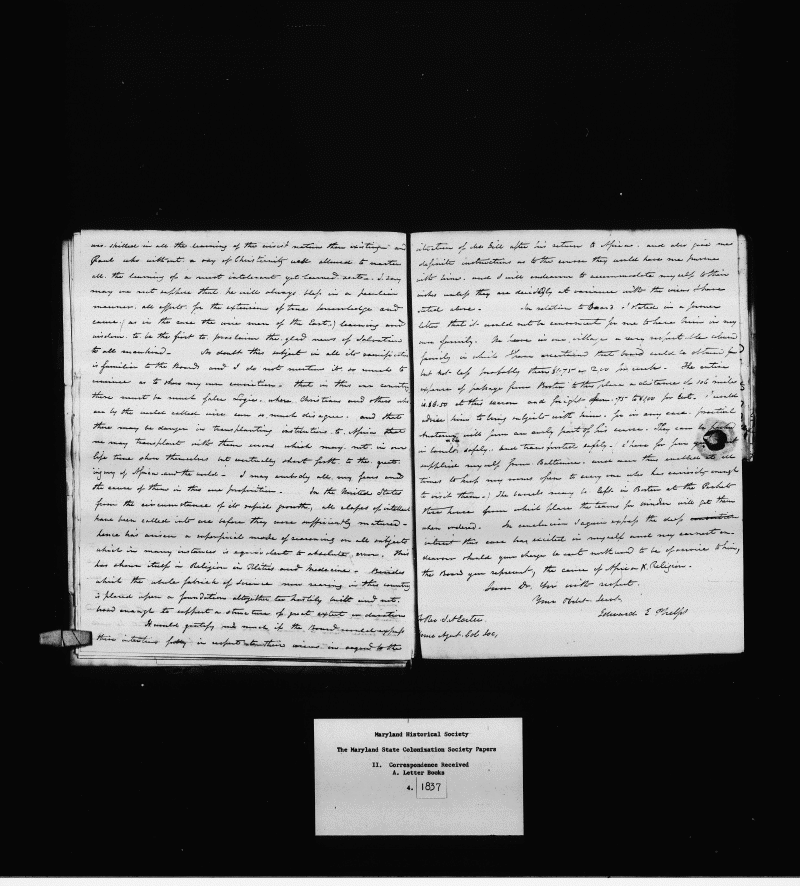 was skilled in all the learning of the wisest nation then existing and
Paul who without a ray of Christianity was allowed to master
all the learning of a most intolerant yet learned sects. I say
may we not suppose that he will always bless in a peculiar
manner all efforts for the extension of true knowledge and
cause (as in the case the wise men of the East,) learning and
wisdom to be the first to proclaim the glad news of Salvation
to all mankind. No doubt this subject in all its ramifications
is familiar to the Board and I do not mention it so much to
as to show my own convictions that in this our country
there must be much false Logic, where Christians and others who
are by the world called wise men so much disagree. and that
there may be danger in transplanting instructions to Africa that
we may transplant with them errors which may not in our
life time show themselves but eventually shoot forth to the great
injury of Africa and the world. I may embody all my fears and
the cause of them in this one proposition. In the United States
from the circumstance of its rapid growth, all classes of intellect
have been called into use before they were sufficiently matured -
hence has arisen a superficial mode of reasoning on all subjects
which in many instances is equivalent to absolute error. This
has shown itself in Religion in Politics and Medicine. Besides
which the whole fabrick of science now rearing in this country
is placed upon a foundation altogether too hastily built and not
broad enough to support a structure of great extent or duration
It would gratify me much if the Board would express
their intentions fully in respect to their views in regard to the
situation of Mr. Dill after his return to Africa and also give me
definite instructions as to the course they would have me pursue
with him. and I will endeavor to accommodate myself to their
wishes unless they are decidedly at variance with the views I have
stated above. In relation to board I stated in a former
letter that it would not be convenient for me to have him in my
own family. We have in our village a very respectable colored
family in which I have ascertained that board could be obtained for
but not less probably than $1.75 or 2.00 per week. The entire
expense of passage from Boston to this place a distance of 106 miles
is $6.50 at this season and freight from .75 to $1.00 per cwt. I would
advise him to bring subjects with him. for in any case practical
Anatomy will form an early part of his course. They can be
in barrels safely. and transported safely. I have for
supplied myself from Baltimore. and
times to keep my rooms open to every one who has curiosity enough
to visit them. The barrels may be left in Boston at the
house from which place the teams for Windsor will get them
when ordered. In conclusion I again express the deep
interest this case has excited in myself and my earnest en-
deavour should your charge be sent northward to be of service to him,
the Board you represent, the cause of Africa & Religion.
I am Dr. Sir with respect
Your Obdt. Servt,
Edward E Phelps
To Rev
Home Agent. Col Soc,
Maryland Historical Society
The Maryland State Colonization Society Papers
II. Correspondence Received
A. Letter Books
4. 1837